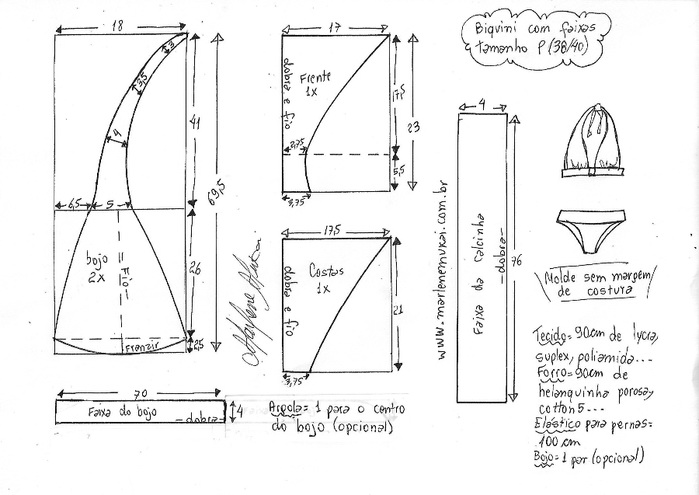 Biquíni com faixas
tamanho P (38/40)
18
3
3,5
4
41
69,5
6,5
5
bojo
2x
fio
26
Franzir
2,5
70
Faixa do bojo
dobra
4
17
dobra e fio
Frente
1x
17,5
23
2,25
5,5
3,75
17,5
dobra e fio
Costas
1x
21
3,75
Argola= 1 para o centro
do bojo (opcional)
www.marlenemukai.com.br
4
Faixa da calcinha
dobra
76
Molde sem margem
de costura
Tecido= 90cm de lycra,
suplex, poliamida...
Forro= 90cm de
helanquinha porosa,
cotton 5...
Elástico para pernas=
100 cm
Bojo= 1 par (opcional)